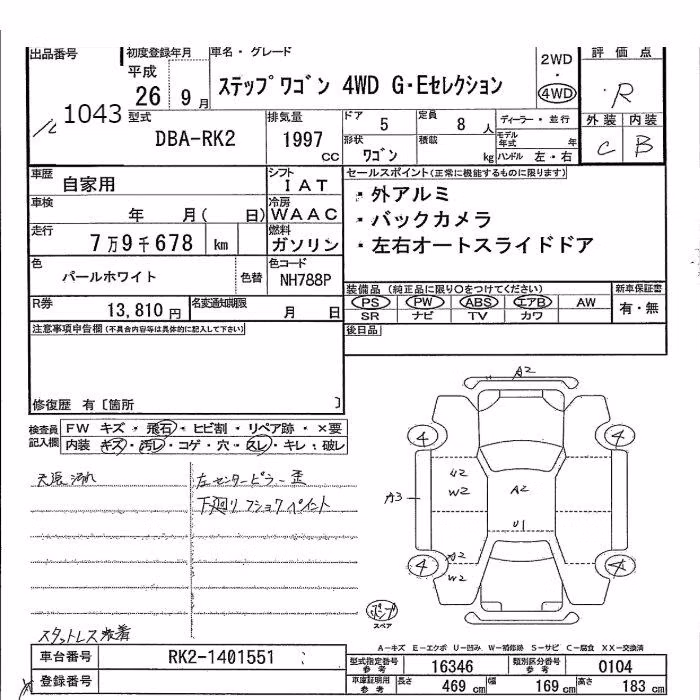 出品番号 初度登録年月 車名・グレード 2WD 評価点
平成 ・
26 9月 ステップワゴン 4WD G・Eセレクション 4WD R
1043 型式 排気量 ドア 定員 ディーラー・並行 外装 内装
DBA-RK2 1997 cc 5 8人 モデル年式 年 C B
形状 積載
ワゴン kg ハンドル 左・右
車歴 自家用 シフト IAT セールスポイント(正常に機能するものに限ります)
車検 年 月( 日) 冷房 WAAC ・外アルミ
走行 7万9千678 km 燃料 ガソリン ・バックカメラ
・左右オートスライドドア
色 パールホワイト 色替 色コード NH788P
装備品(純正品に限り○をつけてください) 新車保証書
R券 13,810円 名変通知期限 月 日 PS PW ABS エアB AW 有・無
SR ナビ TV カワ
注意事項申告欄(不具合内容等は具体的に記入して下さい) 後日品
修復歴 有[箇所 ]
検査員記入欄 FW キズ・飛石・ヒビ割・リペア跡・×要
内装 キズ・汚レ・コゲ・穴・スレ・キレ・破レ
天張汚れ 左センターピラー歪
下廻りフショクペイント
A2
4 4
U2
A3 W2 A2
U1
A2
4 W2 4
スペア
スタットレス装着
A-キズ E-エクボ U-凹み W-補修跡 S-サビ C-腐食 XX-交換済
車台番号 RK2-1401551 型式指定番号参考 16346 類別区分番号参考 0104
登録番号 車庫証明用参考 長さ 469cm 幅 169cm 高さ 183cm